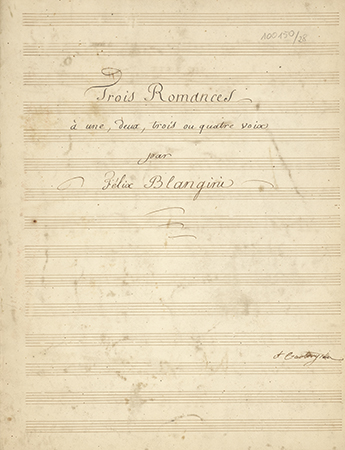 100150/28
Trois Romances
à une, deux, trois ou quatre voix
par
Félix Blangini